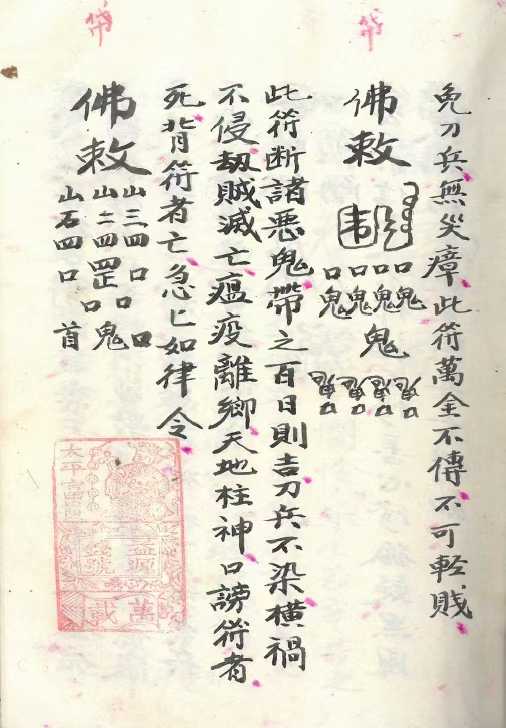 免刀兵無災瘴此符萬金不傳不可輕賤
佛敕
口口口口
鬼鬼鬼鬼
鬼
此符斷諸惡鬼帶之百日則吉刀兵不染橫禍
不侵劫賊滅亡瘟疫離鄉天地柱神口謗符者
死背符者亡急匕如律令
佛敕
山三四口口
山二四罡口鬼
山石四口首
太平富
萬